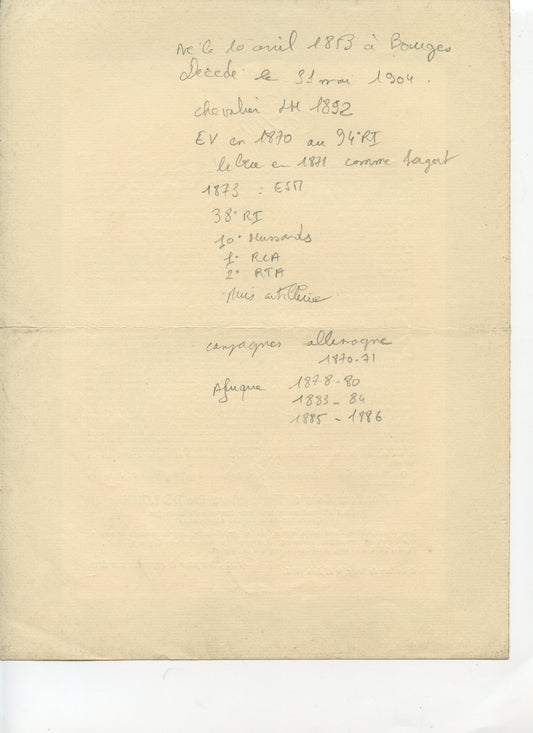 Né le 10 avril 1853 à Bourges
Décédé le 31 mai 1904.
chevalier LH 1892
EV en 1870 au 94°RI
libéré en 1871 comme
1873 : ESM
38° RI
10° Hussards
1° RCA
2° RTA
Puis artillerie
campagnes allemagne
1870-71
Afrique 1878-80
1883-84
1885-1986